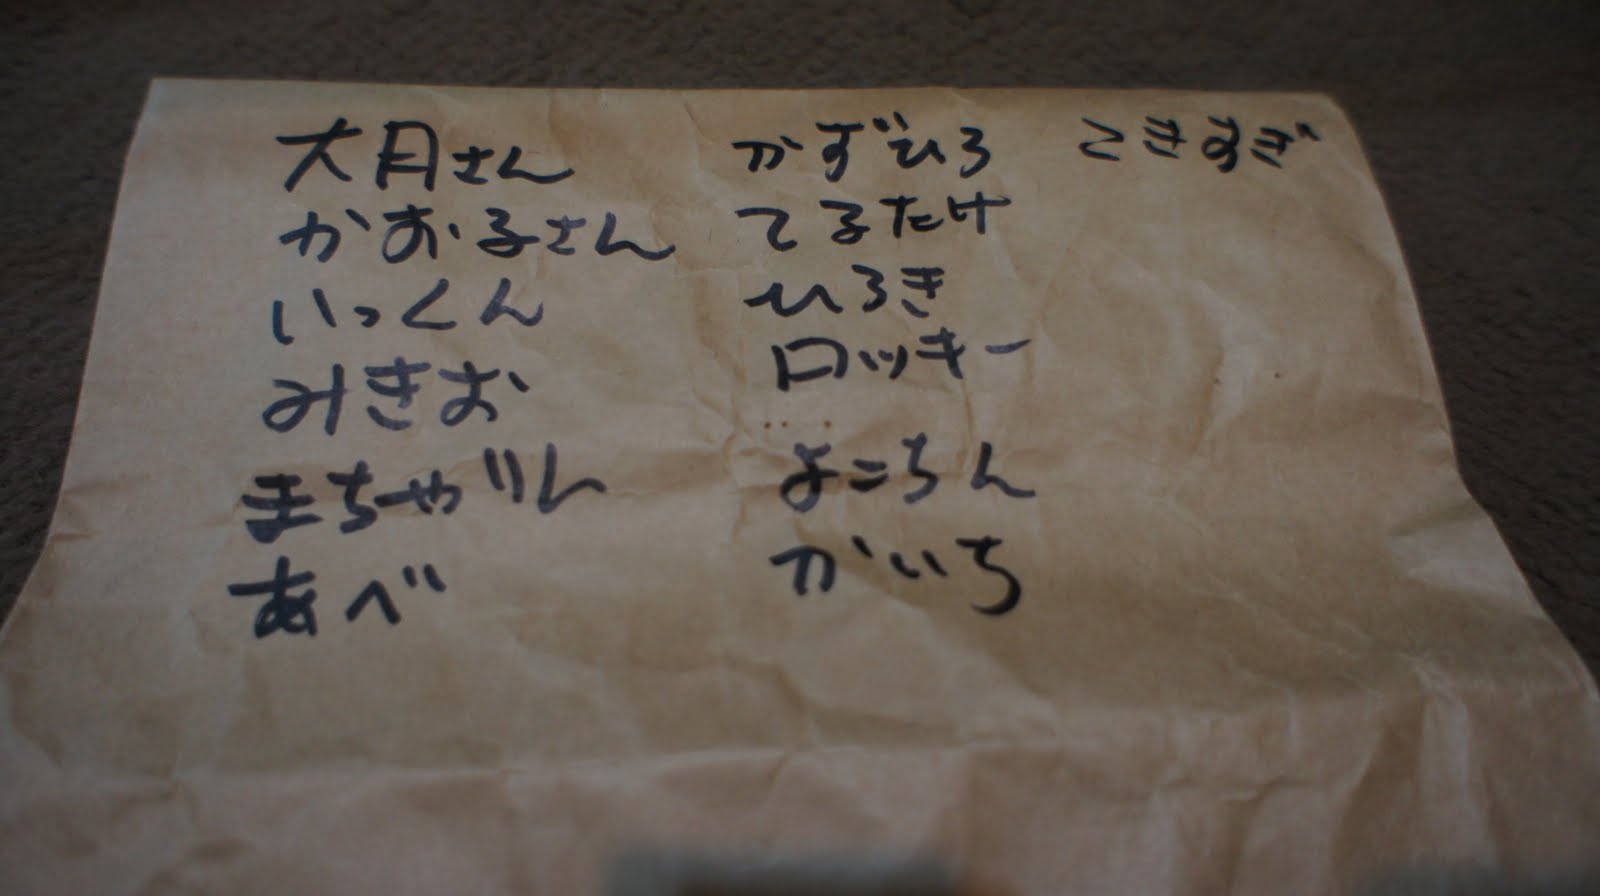 大月さん
かお子さん
いっくん
みきお
まちゃりん
あべ
かずひろ
てるたけ
ひろき
ロッキー
よこちん
かいち
こきすぎ